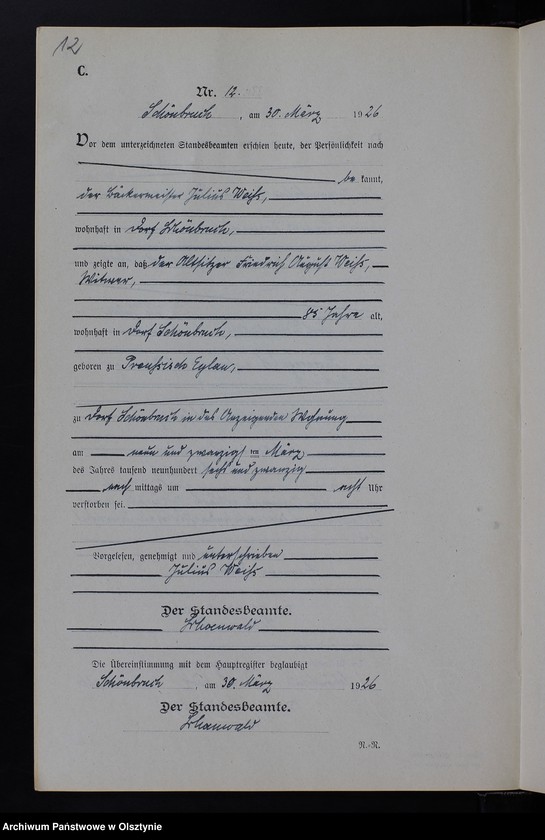 12
C.
Nr. 12.
Schönbruch, am 30. März 1926
Vor dem unterzeichneten Standesbeamten erschien heute, der Persönlichkeit nach
be kannt,
der Bäckermeister Julius Weiß,
wohnhaft in Dorf Schönbruch,
und zeigte an, daß der Altsitzer Friedrich August Weiß,
Witwer,
85 Jahre alt,
wohnhaft in Dorf Schönbruch,
geboren zu Preußisch Eylau,
zu Dorf Schönbruch in des Anzeigenden Wohnung
am neun und zwanzigsten März
des Jahres tausend neunhundert sechs und zwanzig
nach mittags um acht Uhr
verstorben sei.
Vorgelesen, genehmigt und unterschrieben
Julius Weiß
Der Standesbeamte.
Schoenwald
Die Übereinstimmung mit dem Hauptregister beglaubigt
Schönbruch, am 30. März 1926
Der Standesbeamte.
Schoenwald
R.-R.
Archiwum Państwowe w Olsztynie